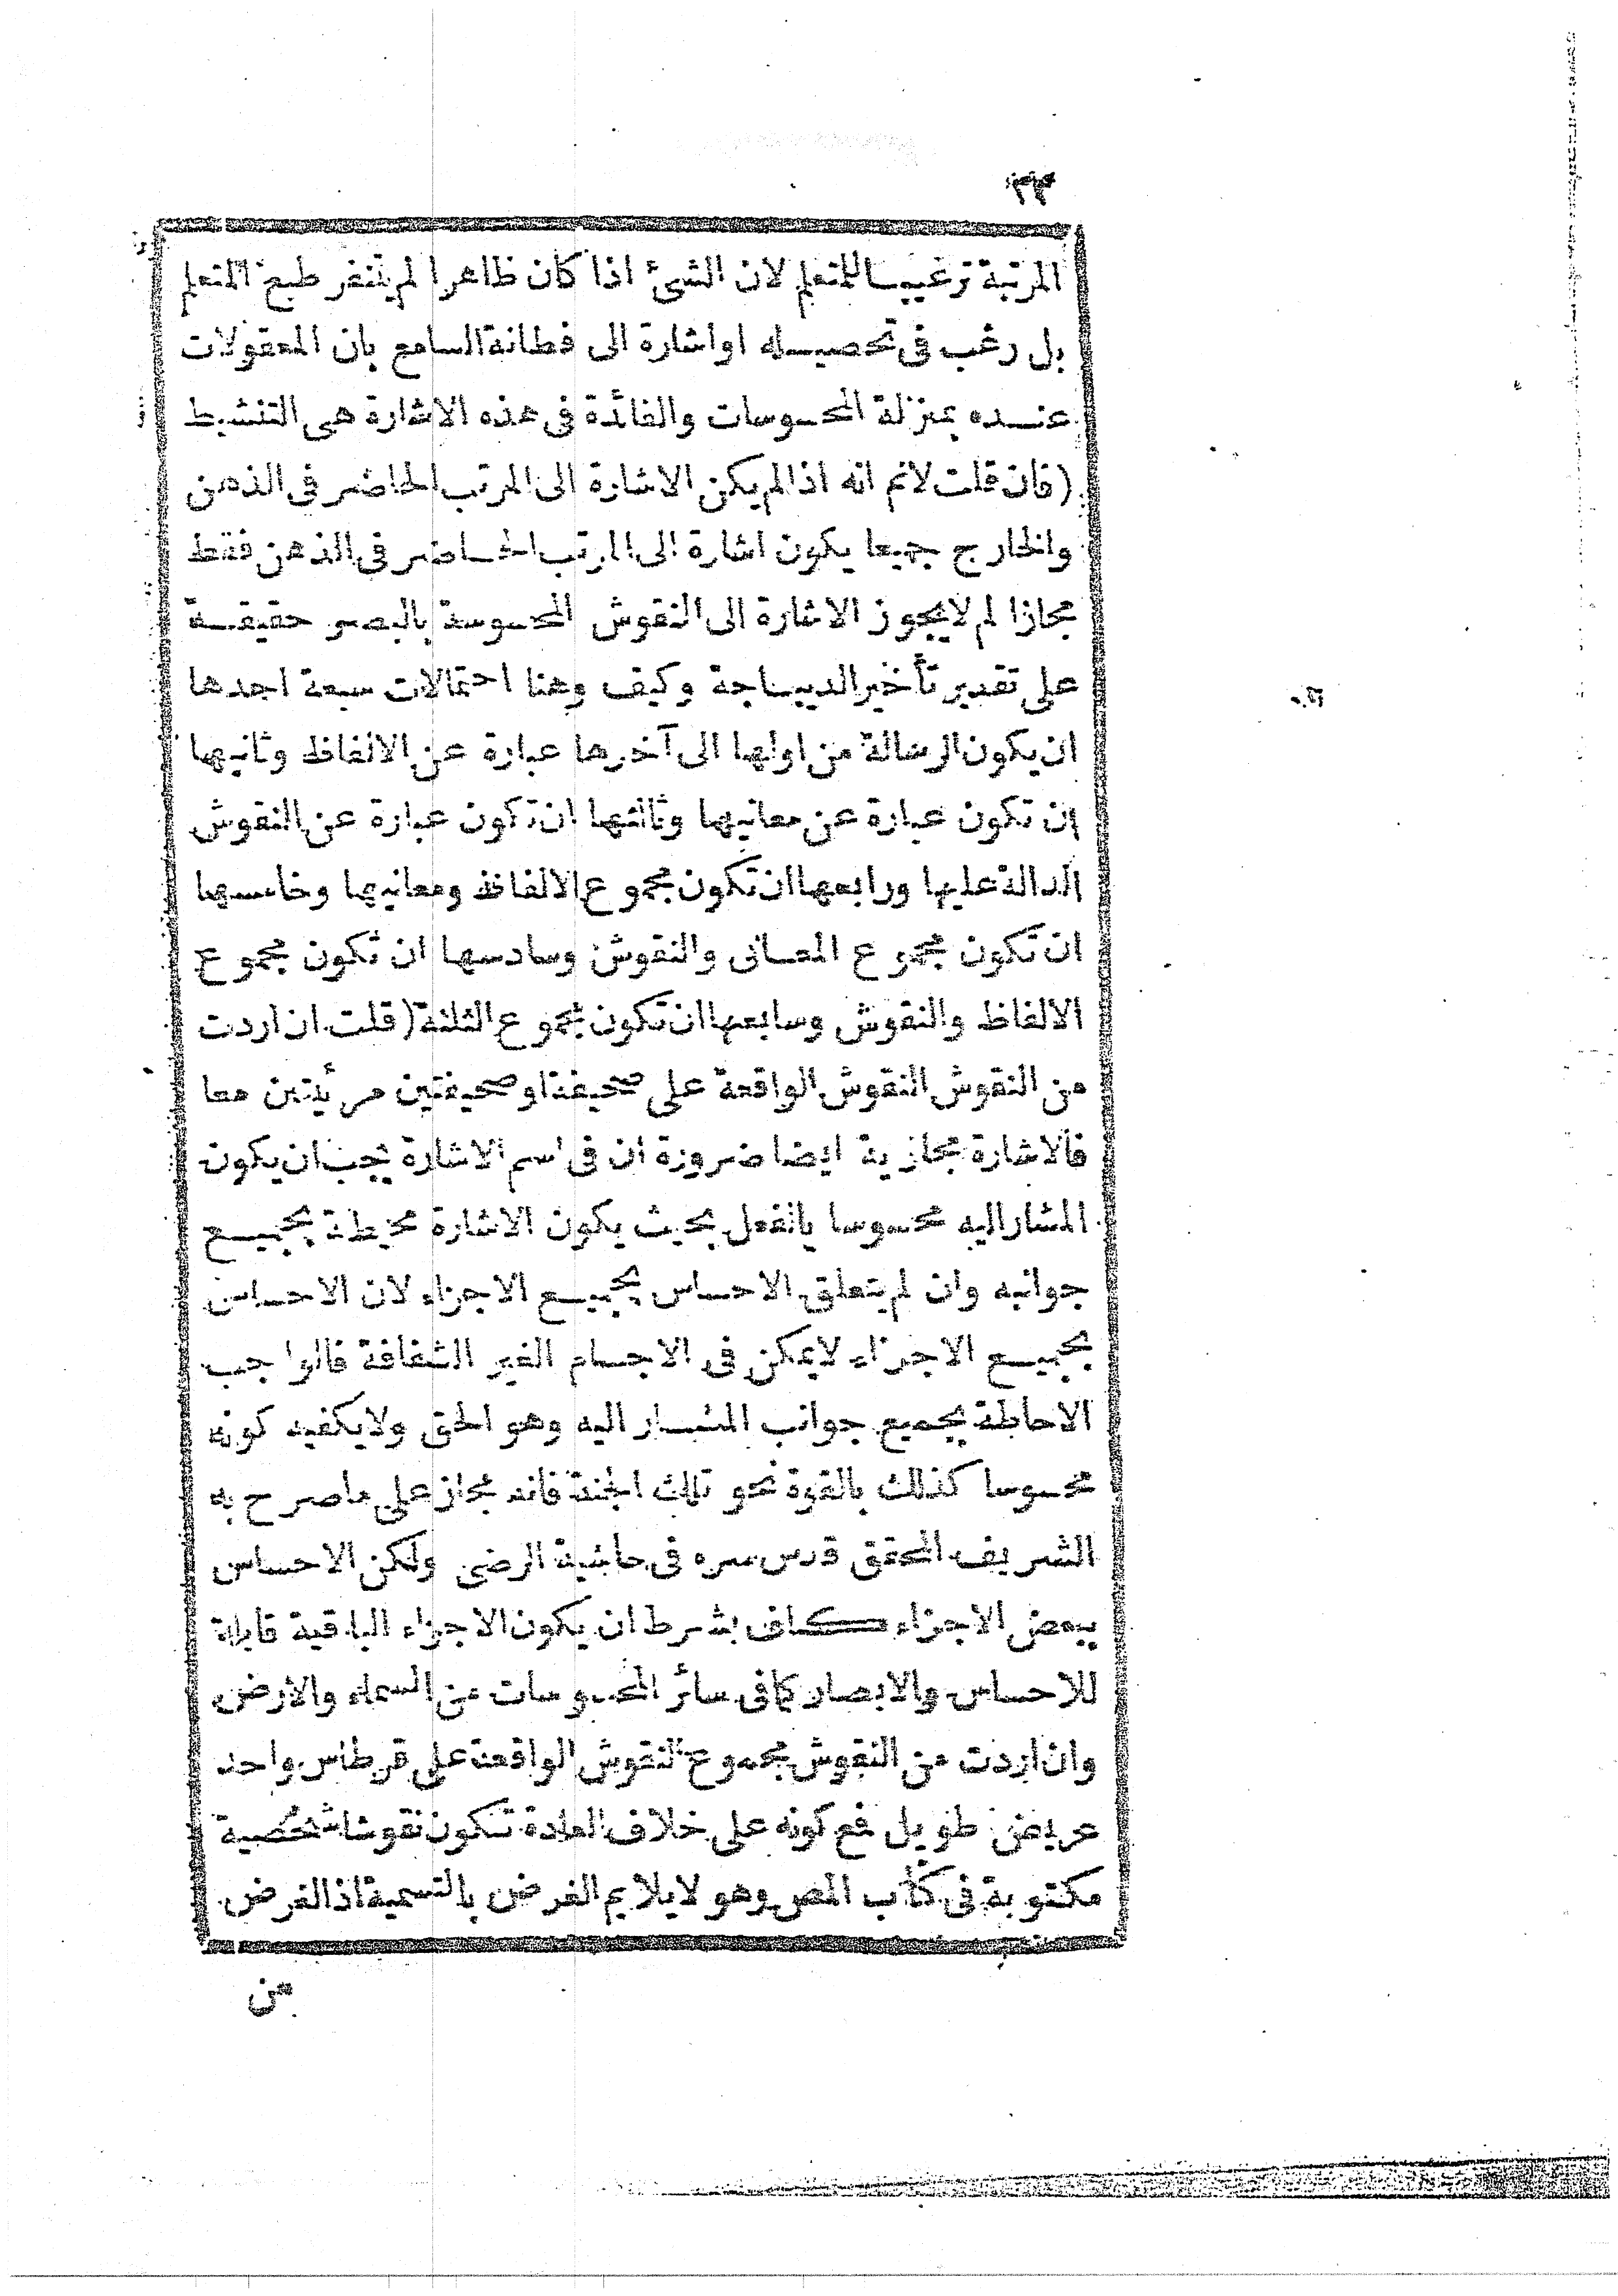 المرتبة ترغيبا للمتعلم لان الشئ اذا كان ظاهرا لم يتنفر طبع المتعلم
بل رغب فى تحصيله او اشارة الى فطانة السامع بان المعقولات
عنده بمنزلة المحسوسات والفائدة فى هذه الاشارة هى التنشيط
(فان قلت لانم انه اذا لم يكن الاشارة الى المرتب الحاضر فى الذهن
والخارج جميعا يكون اشارة الى المرتب الحاضر فى الذهن فقط
مجازا لم لا يجوز الاشارة الى النقوش المحسوسة بالبصر حقيقة
على تقدير تأخير الديباجة وكيف وهنا احتمالات سبعة احدها
ان يكون الرسالة من اولها الى آخرها عبارة عن الالفاظ وثانيها
ان تكون عبارة عن معانيها وثالثها ان تكون عبارة عن النقوش
الدالة عليها ورابعها ان تكون مجموع الالفاظ ومعانيها وخامسها
ان تكون مجموع المعانى والنقوش وسادسها ان تكون مجموع
الالفاظ والنقوش وسابعها ان تكون مجموع الثلثة (قلت ان اردت
من النقوش النقوش الواقعة على صحيفة او صحيفتين مرئيتين معا
فالاشارة مجازية ايضا ضرورة ان فى اسم الاشارة يجب ان يكون
المشار اليه محسوسا بالفعل بحيث يكون الاشارة محيطة بجميع
جوانبه وان لم يتعلق الاحساس بجميع الاجزاء لان الاحساس
بجميع الاجزاء لا يمكن فى الاجسام الغير الشفافة فالواجب
الاحاطة بجميع جوانب المشار اليه وهو الحق ولا يكفيه كونه
محسوسا كذلك بالقوة نحو تلك الجنة فانه مجاز على ما صرح به
الشريف المحقق قدس سره فى حاشية الرضى ولكن الاحساس
ببعض الاجزاء كاف بشرط ان يكون الاجزاء الباقية قابلة
للاحساس والابصار كما فى سائر المحسوسات من السماء والارض
وان اردت من النقوش مجموع النقوش الواقعة على قرطاس واحد
عريض طويل فمع كونه على خلاف العادة تكون نقوشا شخصية
مكتوبة فى كتاب المص وهو لا يلايم الغرض بالتسمية اذ الغرض
من